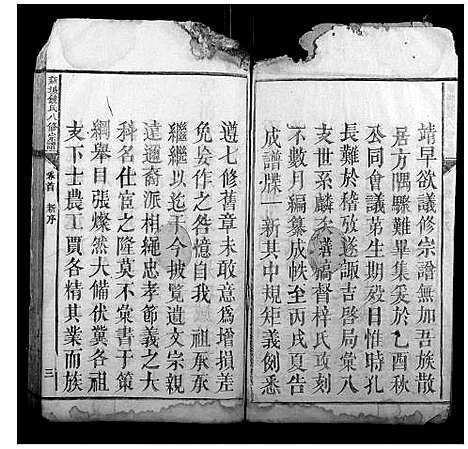 靖早欲議修宗譜無加吾族散
居方隅驟難畢集爰於乙酉秋
公同會議第生期殁日惟時孔
長難於稽攷遂諏吉啓局彙八
支世系麟次稿督梓氏攻刻
不數月編纂成帙至丙戌夏告
成譜牒一新其中規矩義例悉
遵七修舊章未敢意為增損差
免妄作之咎憶自我 祖承承
繼繼以迄于今披覽遺文宗親
達邇裔派相繩忠孝節義之大
科名仕宦之隆莫不彙書于策
綱舉目張燦然大備伏冀各祖
支下士農工賈各精其業而族
氏八修宗譜 卷首 新序 三